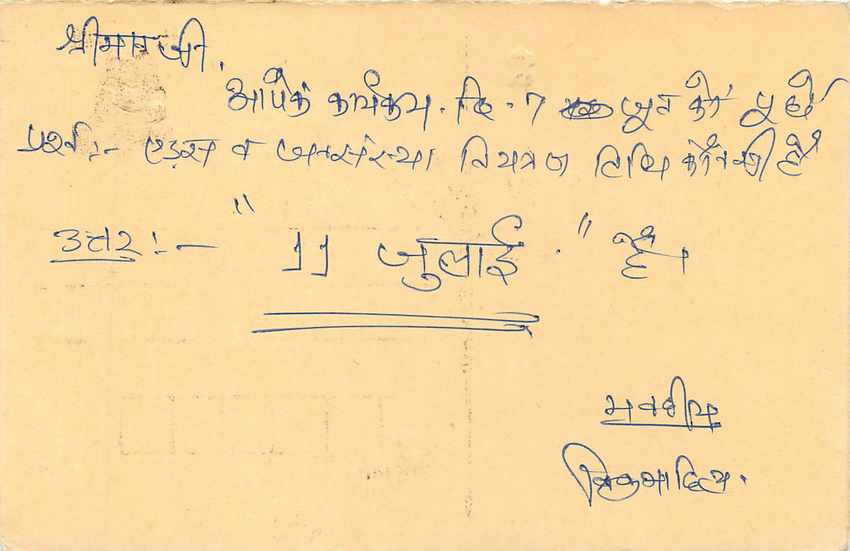 श्रीमान जी,
आपके कार्यक्रम. दि. 7 जून को पूछे
प्रश्न:- एड्स व जनसंख्या नियंत्रण तिथि कौनसी है
उत्तर:- "11 जुलाई." है।
भवदीय
विक्रमादित्य.